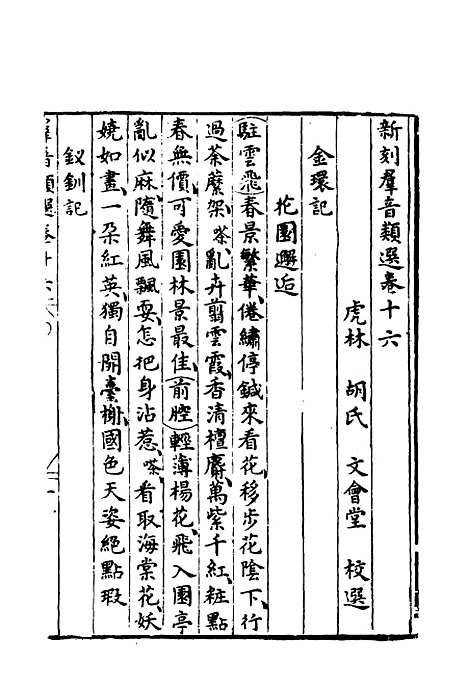 新刻羣音類選卷十六
虎林 胡氏 文會堂 校選
金環記
花園邂逅
駐雲飛春景繁華、倦繡停鍼來看花、移步花陰下、行
過荼䕷架、嗏、亂卉翦雲霞、香清檀麝、萬紫千紅、粧點
春無價、可愛園林景最佳、前腔輕薄楊花、飛入園亭
亂似麻、隨舞風飄耍、怎把身沾惹、嗏、看取海棠花、妖
嬈如畫、一朶紅英、獨自開臺榭、國色天姿絕點瑕
釵釧記
羣音類選卷十六